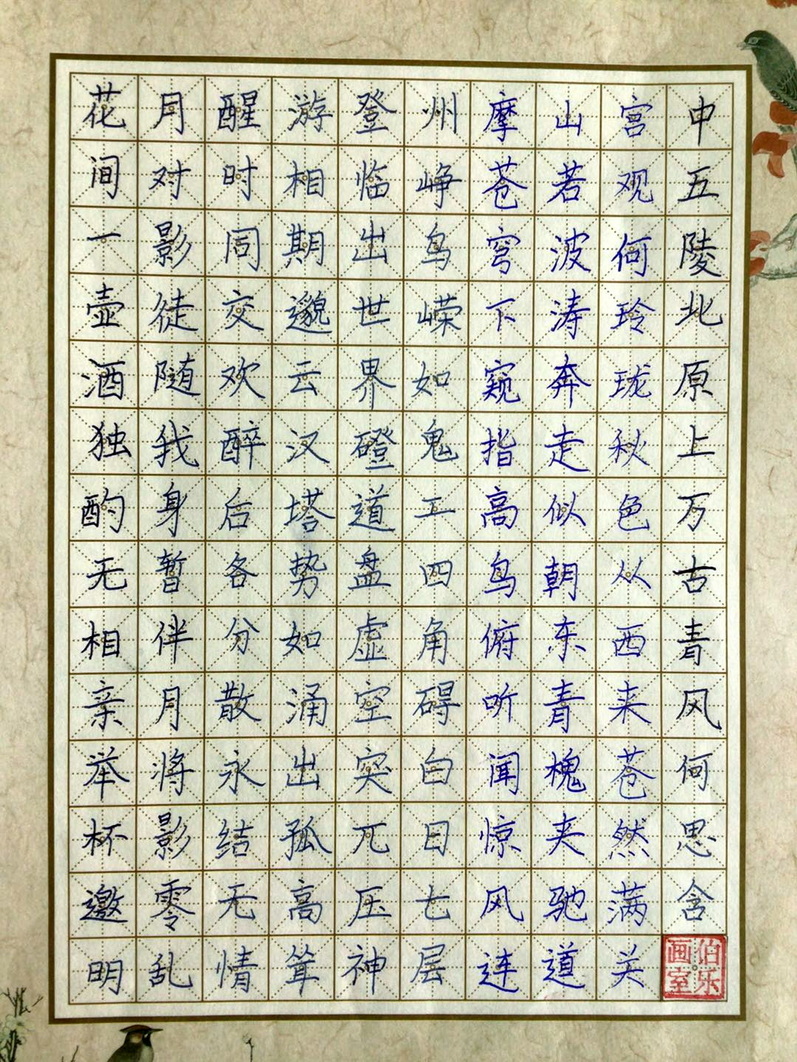 花间一壶酒独酌无相亲举杯邀明
月对影徒随我身暂伴月将影零乱
醒时同交欢醉后各分散永结无情
游相期邈云汉塔势如涌出孤高耸
登临出世界磴道盘虚空突兀压神
州峥鸟嵘如鬼工四角碍白日七层
摩苍穹下窥指高鸟俯听闻惊风连
山若波涛奔走似朝东青槐夹驰道
宫观何玲珑秋色从西来苍然满关
中五陵北原上万古青风何思含
伯乐
画室